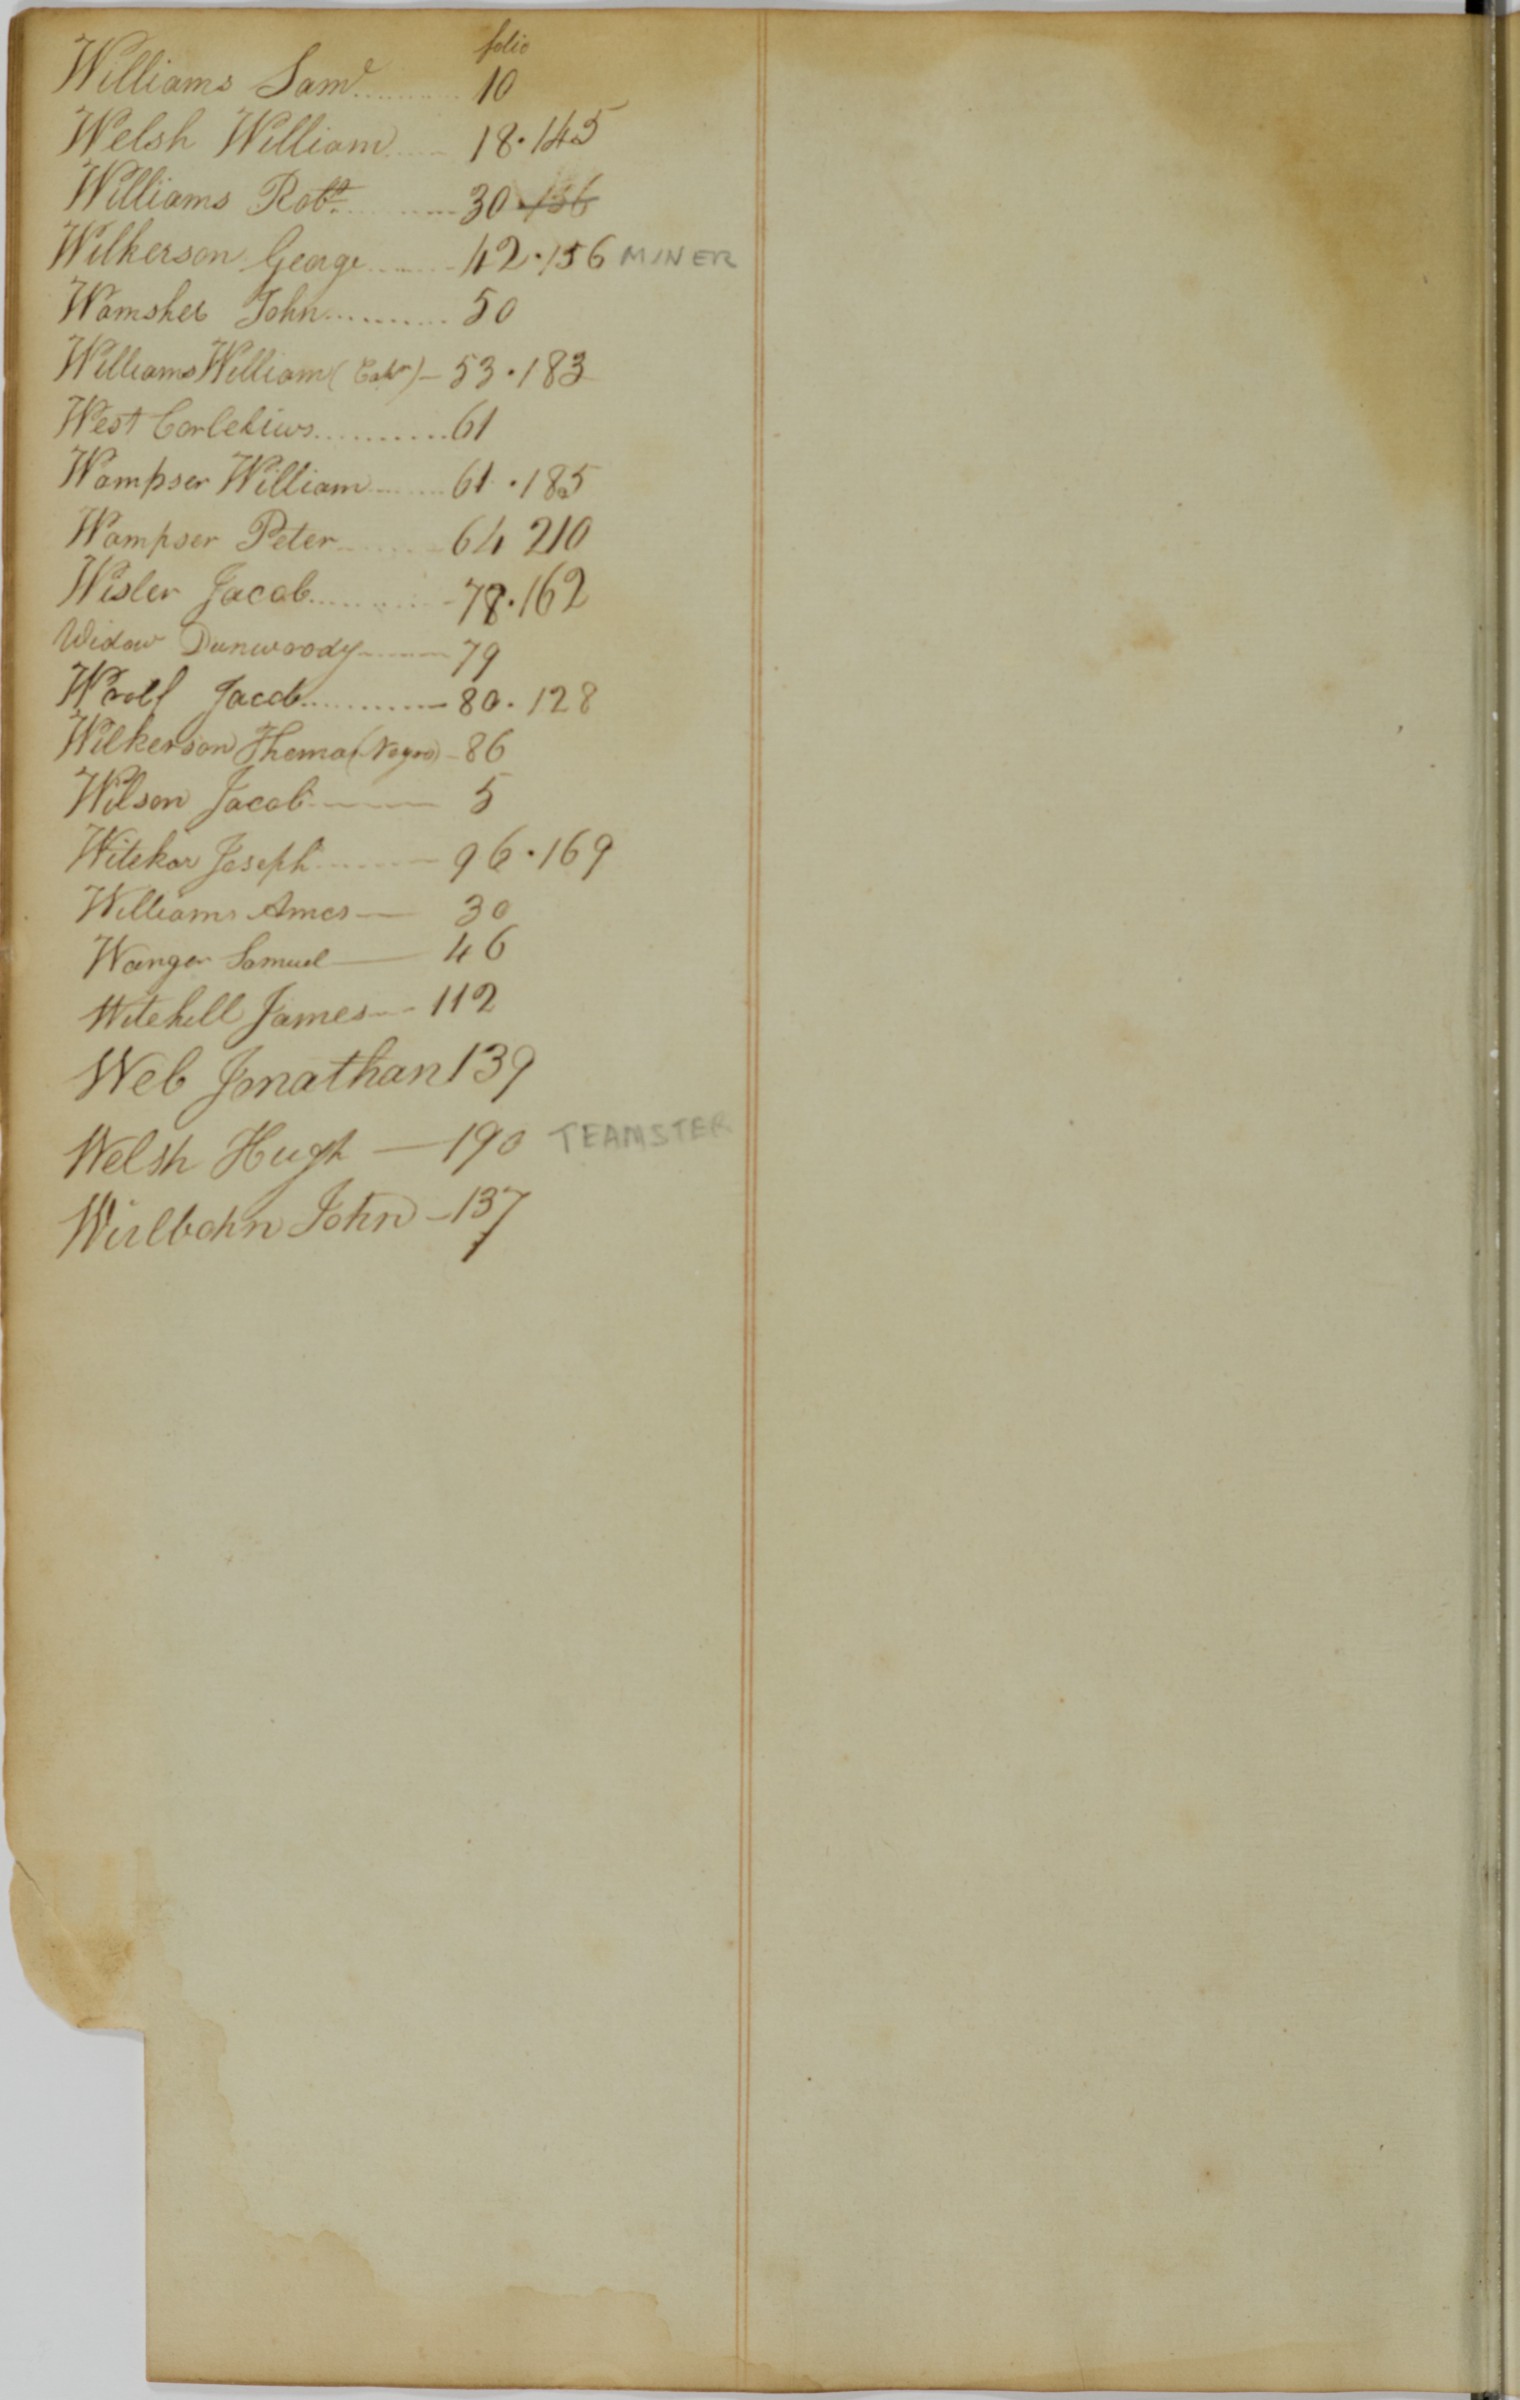 folio
Williams Saml .......... 10
Welsh William ..... 18.145
Williams Robt .......... 30 .136
Wilkerson George ....... 42.156 MINER
Wamsher John .......... 50
Williams William ( ) - 53.183
West Corlelius .......... 61
Wampser William ....... 61.185
Wampser Peter ........ 64 210
Wisler Jacob .......... 78.162
Widow Dunwoody ------ 79
Wrolf Jacob .......... 80.128
Wilkerson Thomas (Negro) - 86
Wilson Jacob ------ 5
Witekar Joseph ------ 96.169
Williams Amos — 30
Wanger Samuel — 46
Witehill James --- 112
Web Jonathan 139
Welsh Hugh — 190 TEAMSTER
Wirlbohn John - 137